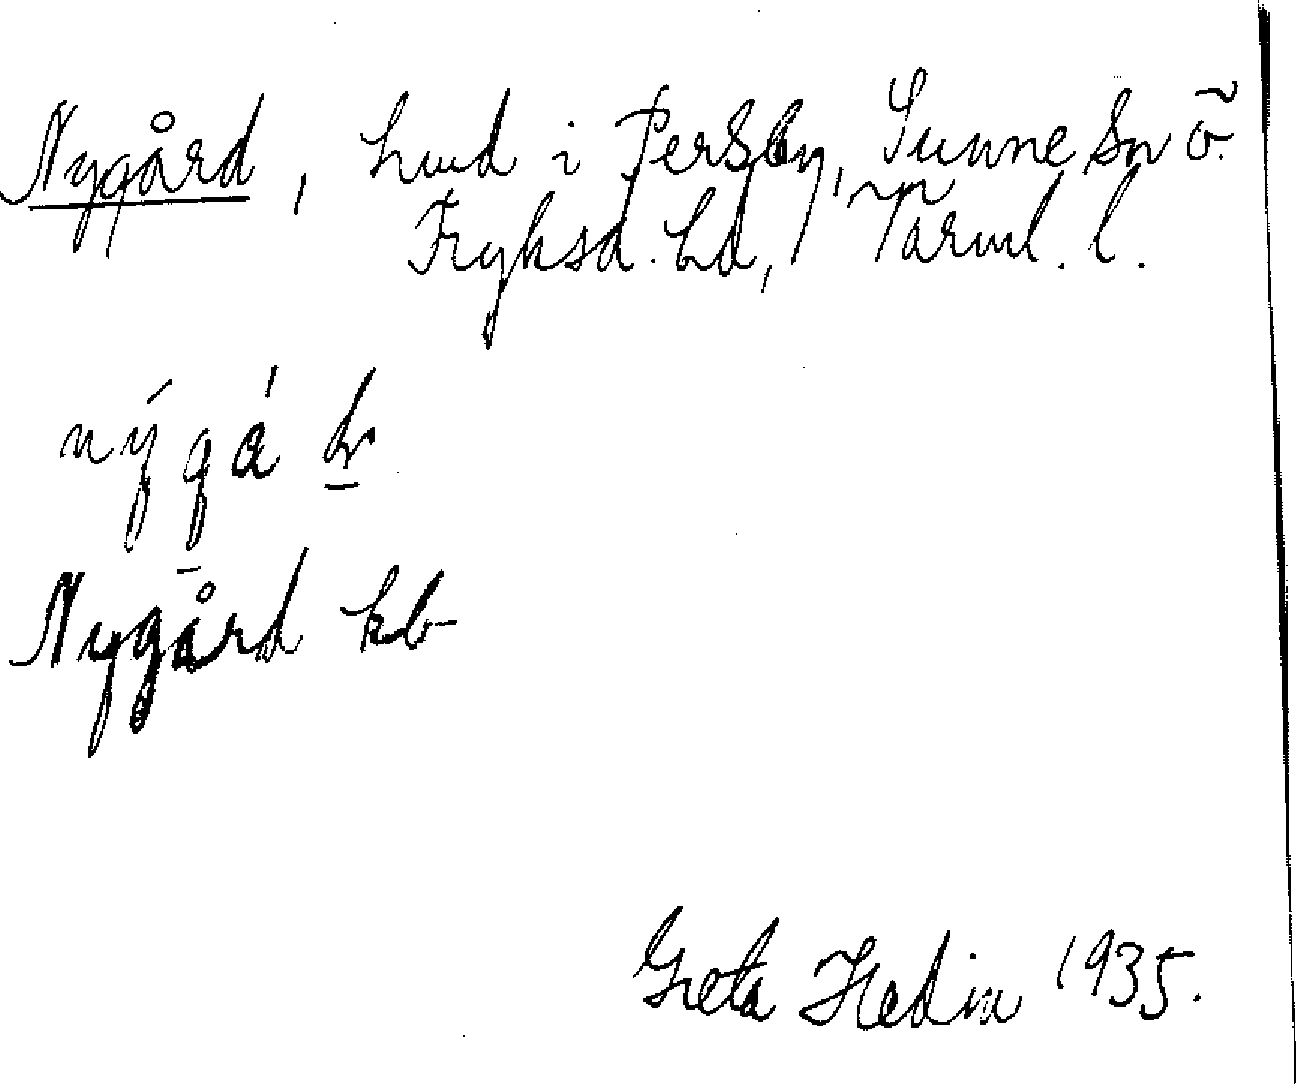 Nygård, hmd i Persby, Sunne sn Ö.
Fryksd. hd, Värml. l.
nýgá
Nygård kb
Greta Hedin 1935.